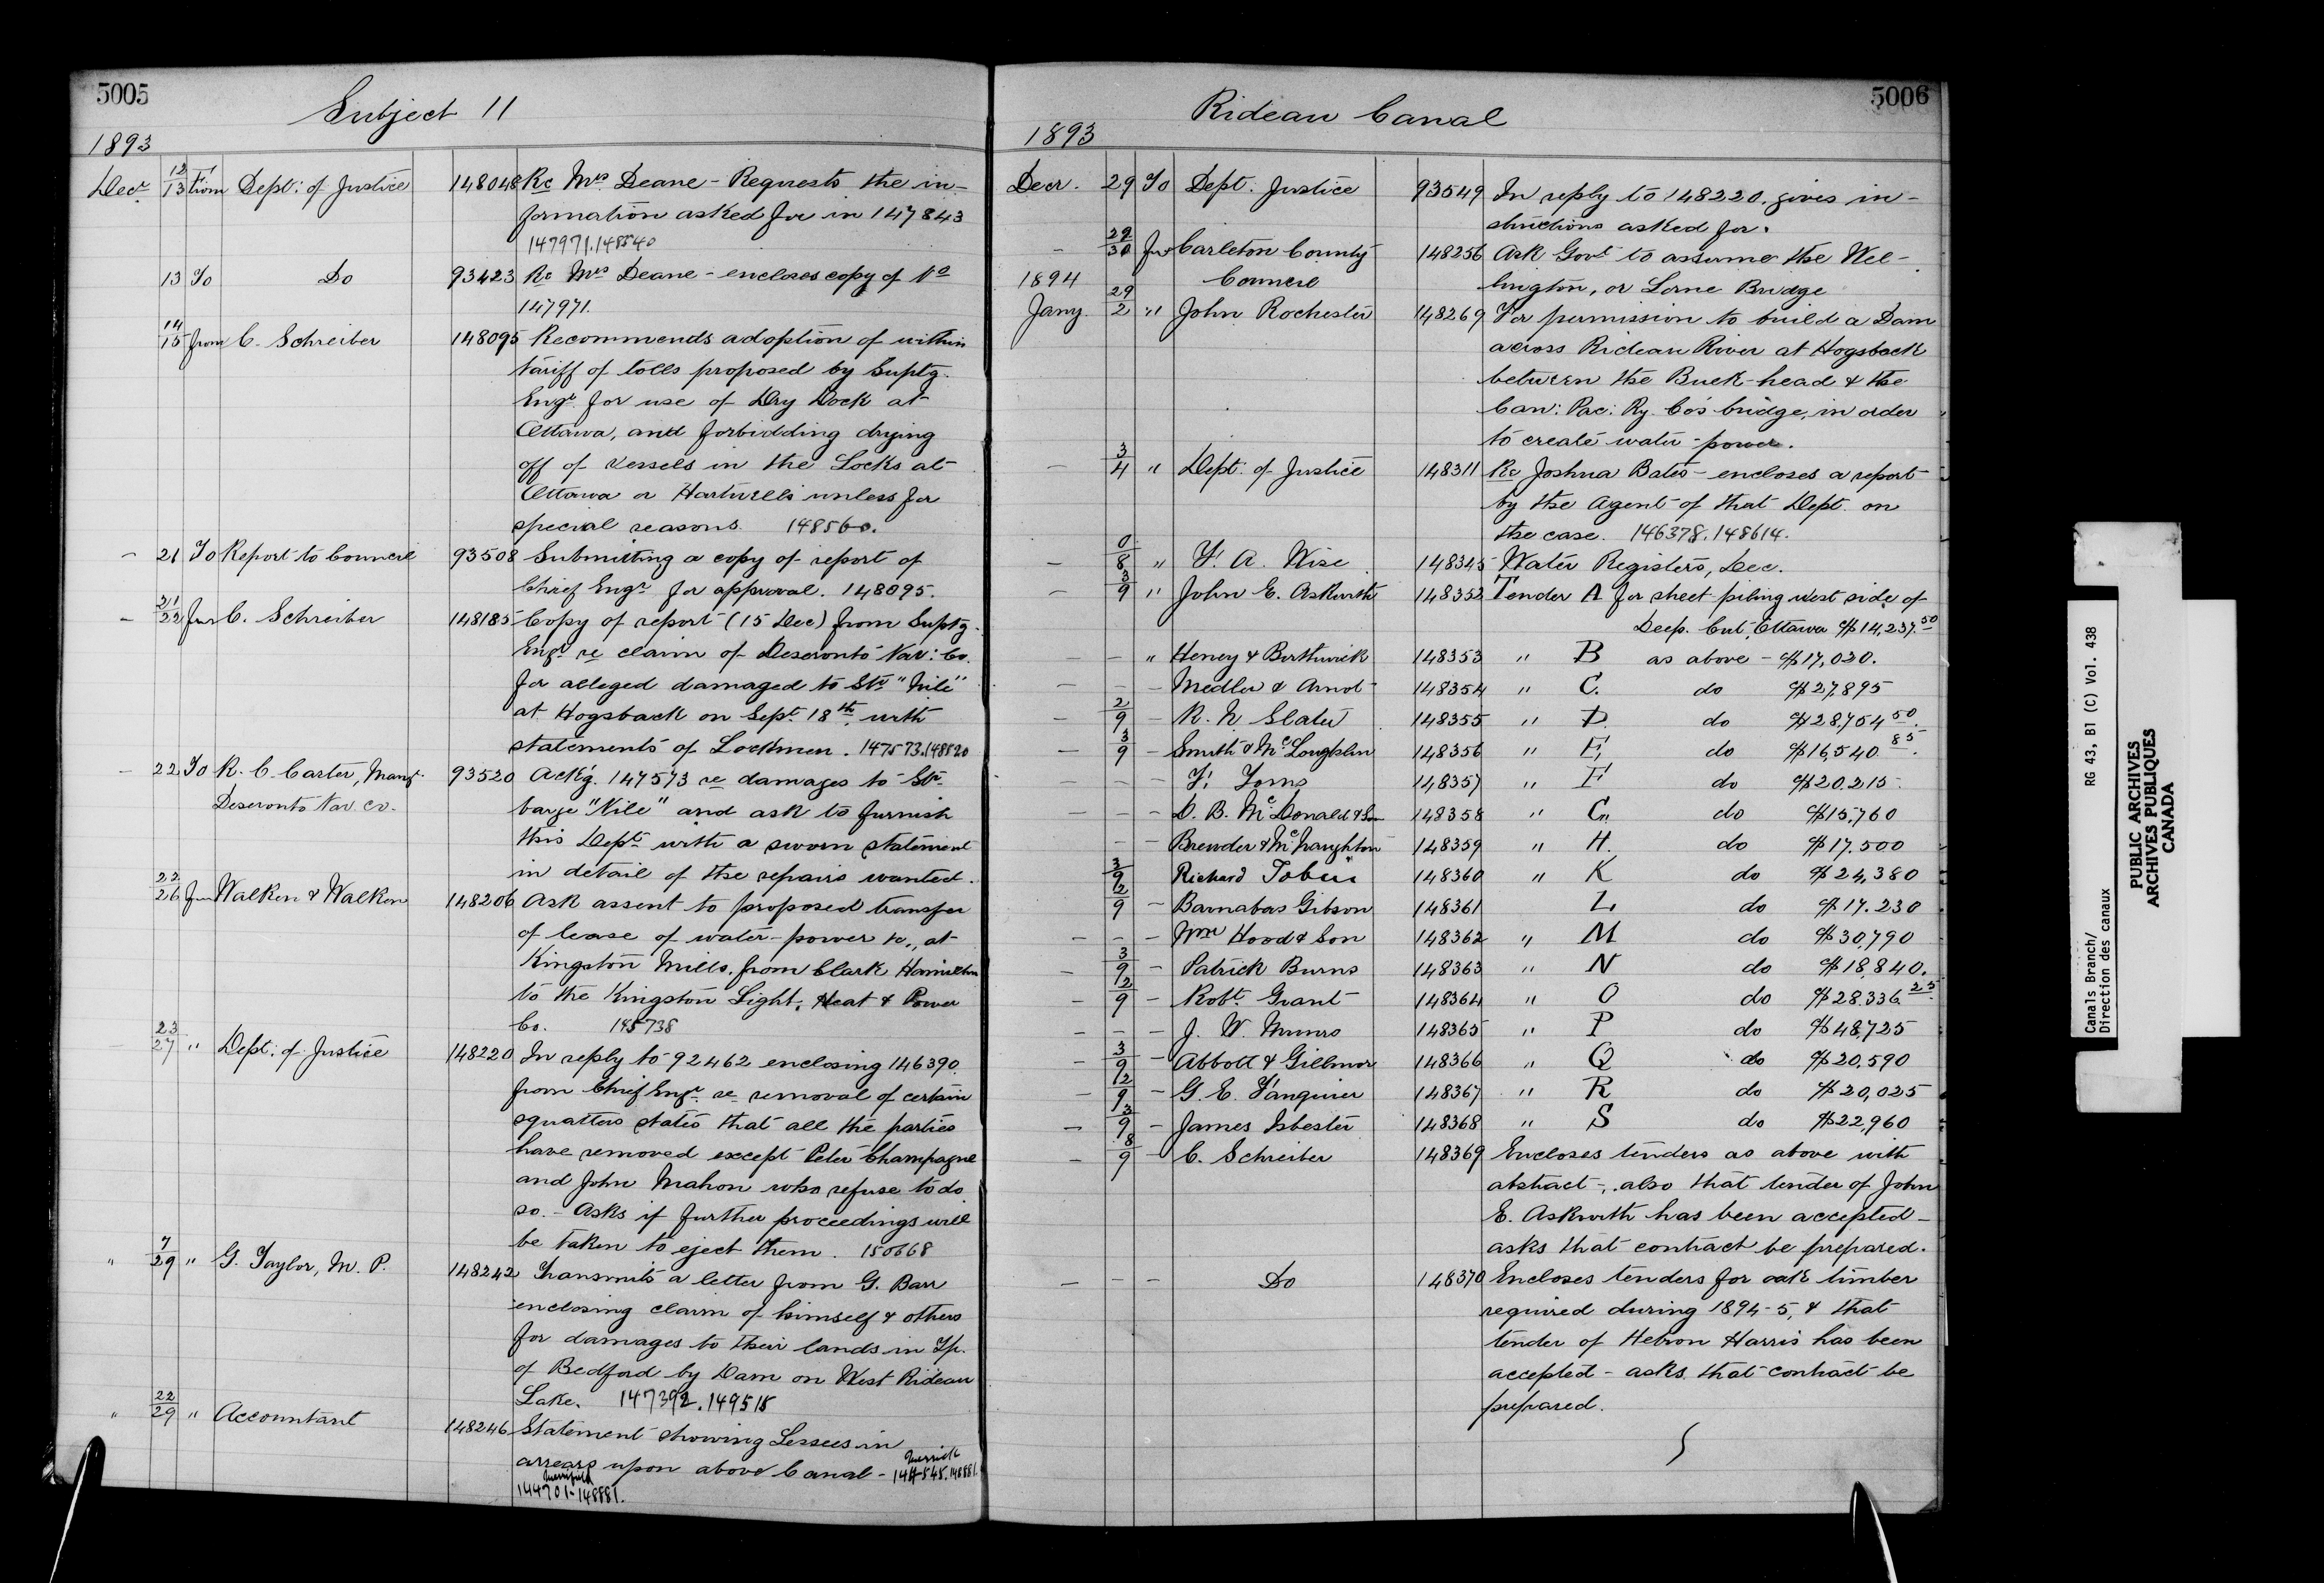 5005
Subject 11
1893
Decr 12/13 from Dept: of Justice 148048 Re Mrs Deane - Requests the in-
formation asked for in 147843
147971.148540
13 To Do 93423 Re Mrs Deane - encloses copy of No
147971.
14/15 from C. Schreiber 148095 Recommends adoption of within
tariff of tolls proposed by Suptg.
Engr for use of Dry Dock at
Ottawa, and forbidding drying
off of vessels in the Locks at
Ottawa or Hartwells unless for
special reasons. 148560.
- 21 To Report to Council 93508 Submitting a copy of report of
Chief Engr for approval. 148095.
- 21/22 from C. Schreiber 148185 Copy of report (15 Dec) from Suptg.
Engr re claim of Deseronto Nav: Co.
for alleged damaged to Str "Nile"
at Hogsback on Sept. 18th. with
statements of Lockmen. 147573.148520
- 22 To R. C. Carter, Mangr. 93520 Ack'g. 147573 re damages to Str
Deseronto Nav. Co.
barge "Nile" and ask to furnish
this Dept with a sworn statement
in detail of the repairs wanted.
22/26 from Walkem & Walkem 148206 Ask assent to proposed transfer
of lease of water-power &c., at
Kingston Mills, from Clark Hamilton
to the Kingston Light, Heat & Power
Co. 145738
23/27 " Dept: of Justice 148220 In reply to 92462 enclosing 146390.
from Chief Engr. re removal of certain
squatters states that all the parties
have removed except Peter Champagne
and John Mahon who refuse to do
so. - Asks if further proceedings will
be taken to eject them. 150668
" 7/29 " G. Taylor, M. P. 148242 Transmits a letter from G. Barr
enclosing claim of himself & others
for damages to their lands in Tp.
of Bedford by Dam on West Rideau
Lake. 147392.149515
" 22/29 " Accountant 148246 Statement showing Lessees in
arrears upon above Canal - Merrick 144545.148881.
144701-148881.
5006
Rideau Canal
1893
Decr. 29 To Dept. Justice 93549 In reply to 148220. gives in-
structions asked for.
- 29/30 from Carleton County 148256 Ask Govt to assume the Wel-
1894 Council lington, or Lorne Bridge
Jany 29/2 " John Rochester 148269 For permission to build a Dam
across Rideau River at Hogsback
between the Buck-head & the
Can: Pac: Ry. Co's bridge, in order
to create water-power.
- 3/4 " Dept. of Justice 148311 Re Joshua Bates - encloses a report
by the Agent of that Dept. on
the case. 146378.148614.
- 0/8 " F. A. Wise 148345 Water Registers, Dec.
- 3/9 " John E. Askwith 148352 Tender A for sheet piling west side of
Deep. Cut, Ottawa $14,237.50
- - " Heney & Borthwick 148353 " B as above - $17,020.
- - - Medler & Arnot 148354 " C. do $27,895
- 2/9 - R. N Slater 148355 " D. do $28,754 50.
- 3/9 - Smith & McLoughlin 148356 " E do $16,540 85.
- - - F. Toms 148357 " F do $20.215.
- - - D. B. McDonald & Son 148358 " G do $15,760
- - Brewder & McNaughton 148359 " H. do $17.500
3/9 Richard Tobin 148360 " K do $24,380
12/9 - Barnabas Gibson 148361 L do $17.230
- - - Wm Hood & Son 148362 " M do $30,790
- 3/9 - Patrick Burns 148363 " N do $18,840.
- 12/9 - Robt. Grant 148364 " O do $28.336.25
- - - J. W. Munro 148365 " P do $48,725
- 3/9 - Abbott & Gillmor 148366 " Q do $20,590
- 12/9 - G. E. Fanquier 148367 " R do $20,025
- 3/9 - James Isbester 148368 " S do $22,960
- 8/9 - C. Schreiber 148369 Encloses tenders as above with
abstract -, also that tender of John
E. Askwith has been accepted -
asks that contract be prepared.
- - - Do 148370 Encloses tenders for oak timber
required during 1894-5, & that
tender of Hebron Harris has been
accepted - asks that contract be
prepared.
Canals Branch/ RG 43, B1 (C) Vol. 438
Direction des canaux
PUBLIC ARCHIVES
ARCHIVES PUBLIQUES
CANADA